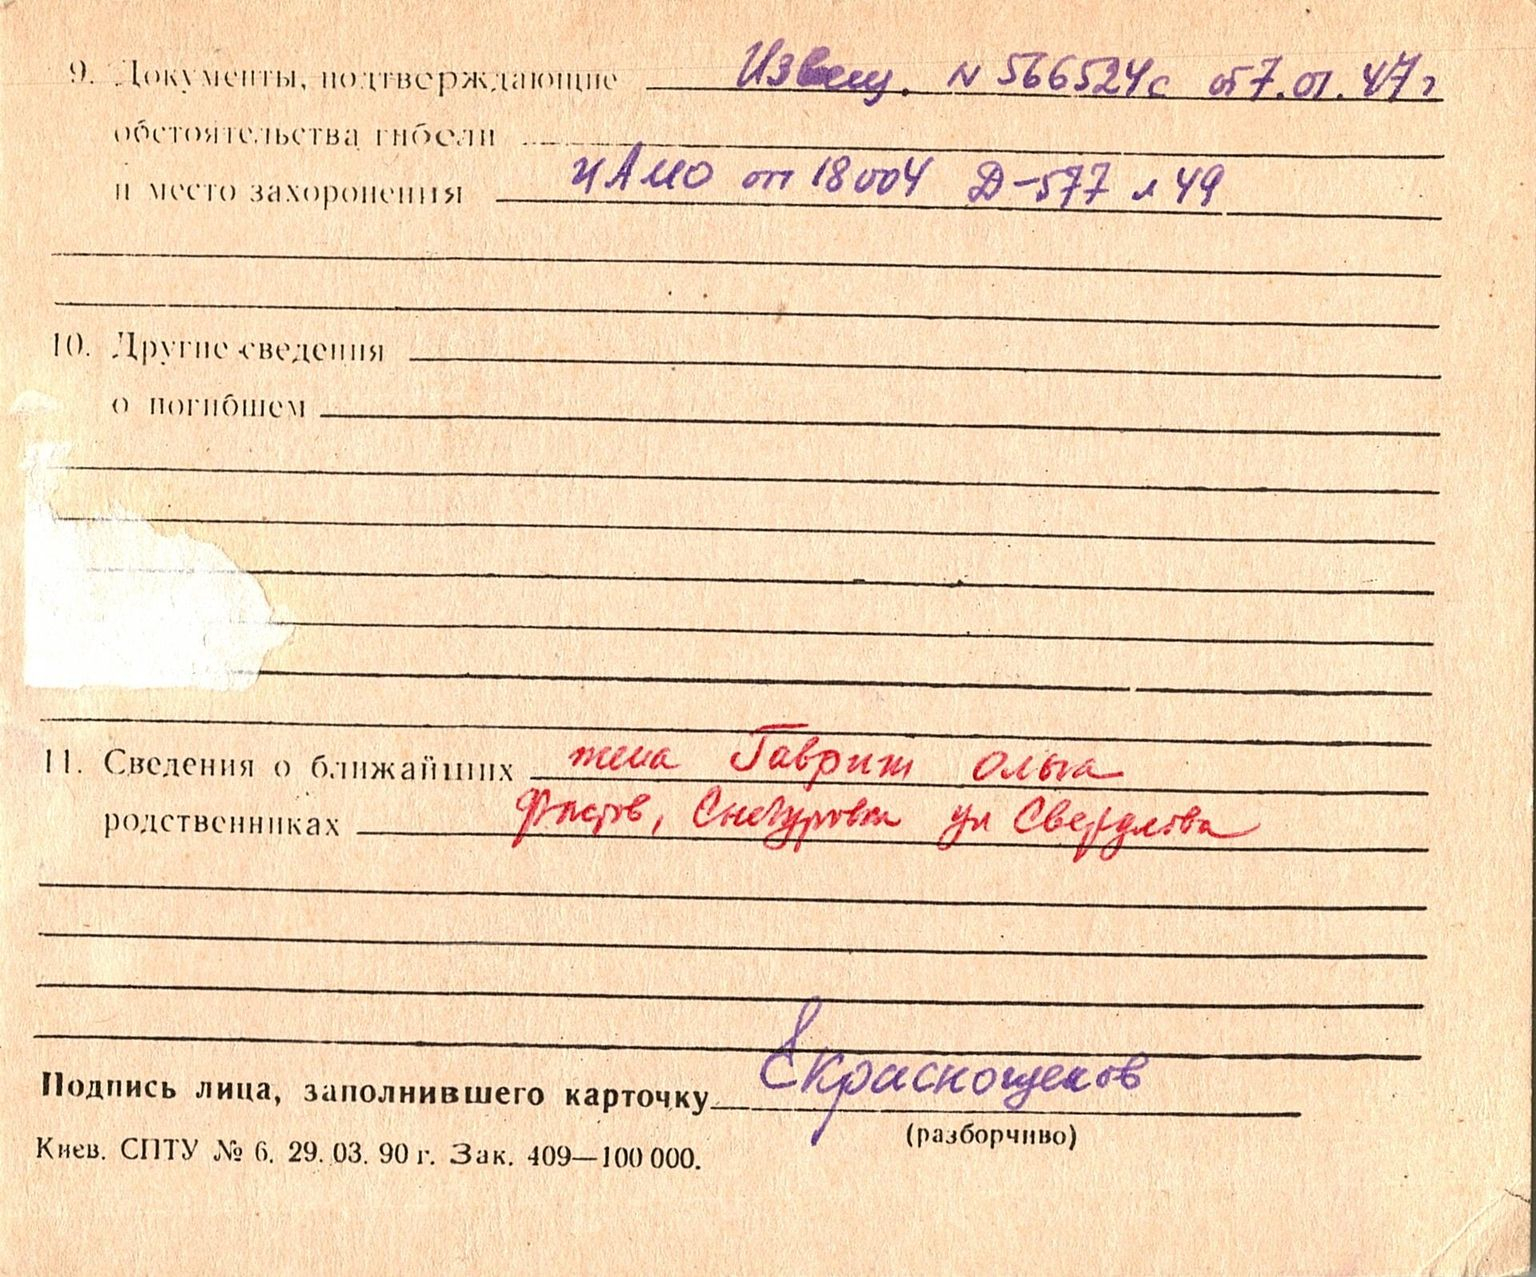 9. Документы, подтверждающие Извещ. N 566524с от 7.01.47 г
обстоятельства гибели
и место захоронения ЦАМО оп 18004 Д-577 л 49
10. Другие сведения
о погибшем
11. Сведения о ближайших жена Гавриш Ольга
родственниках Фастов, Снегуровка ул Свердлова
Подпись лица, заполнившего карточку Краснощеков
(разборчиво)
Киев. СПТУ № 6. 29. 03. 90 г. Зак. 409—100 000.